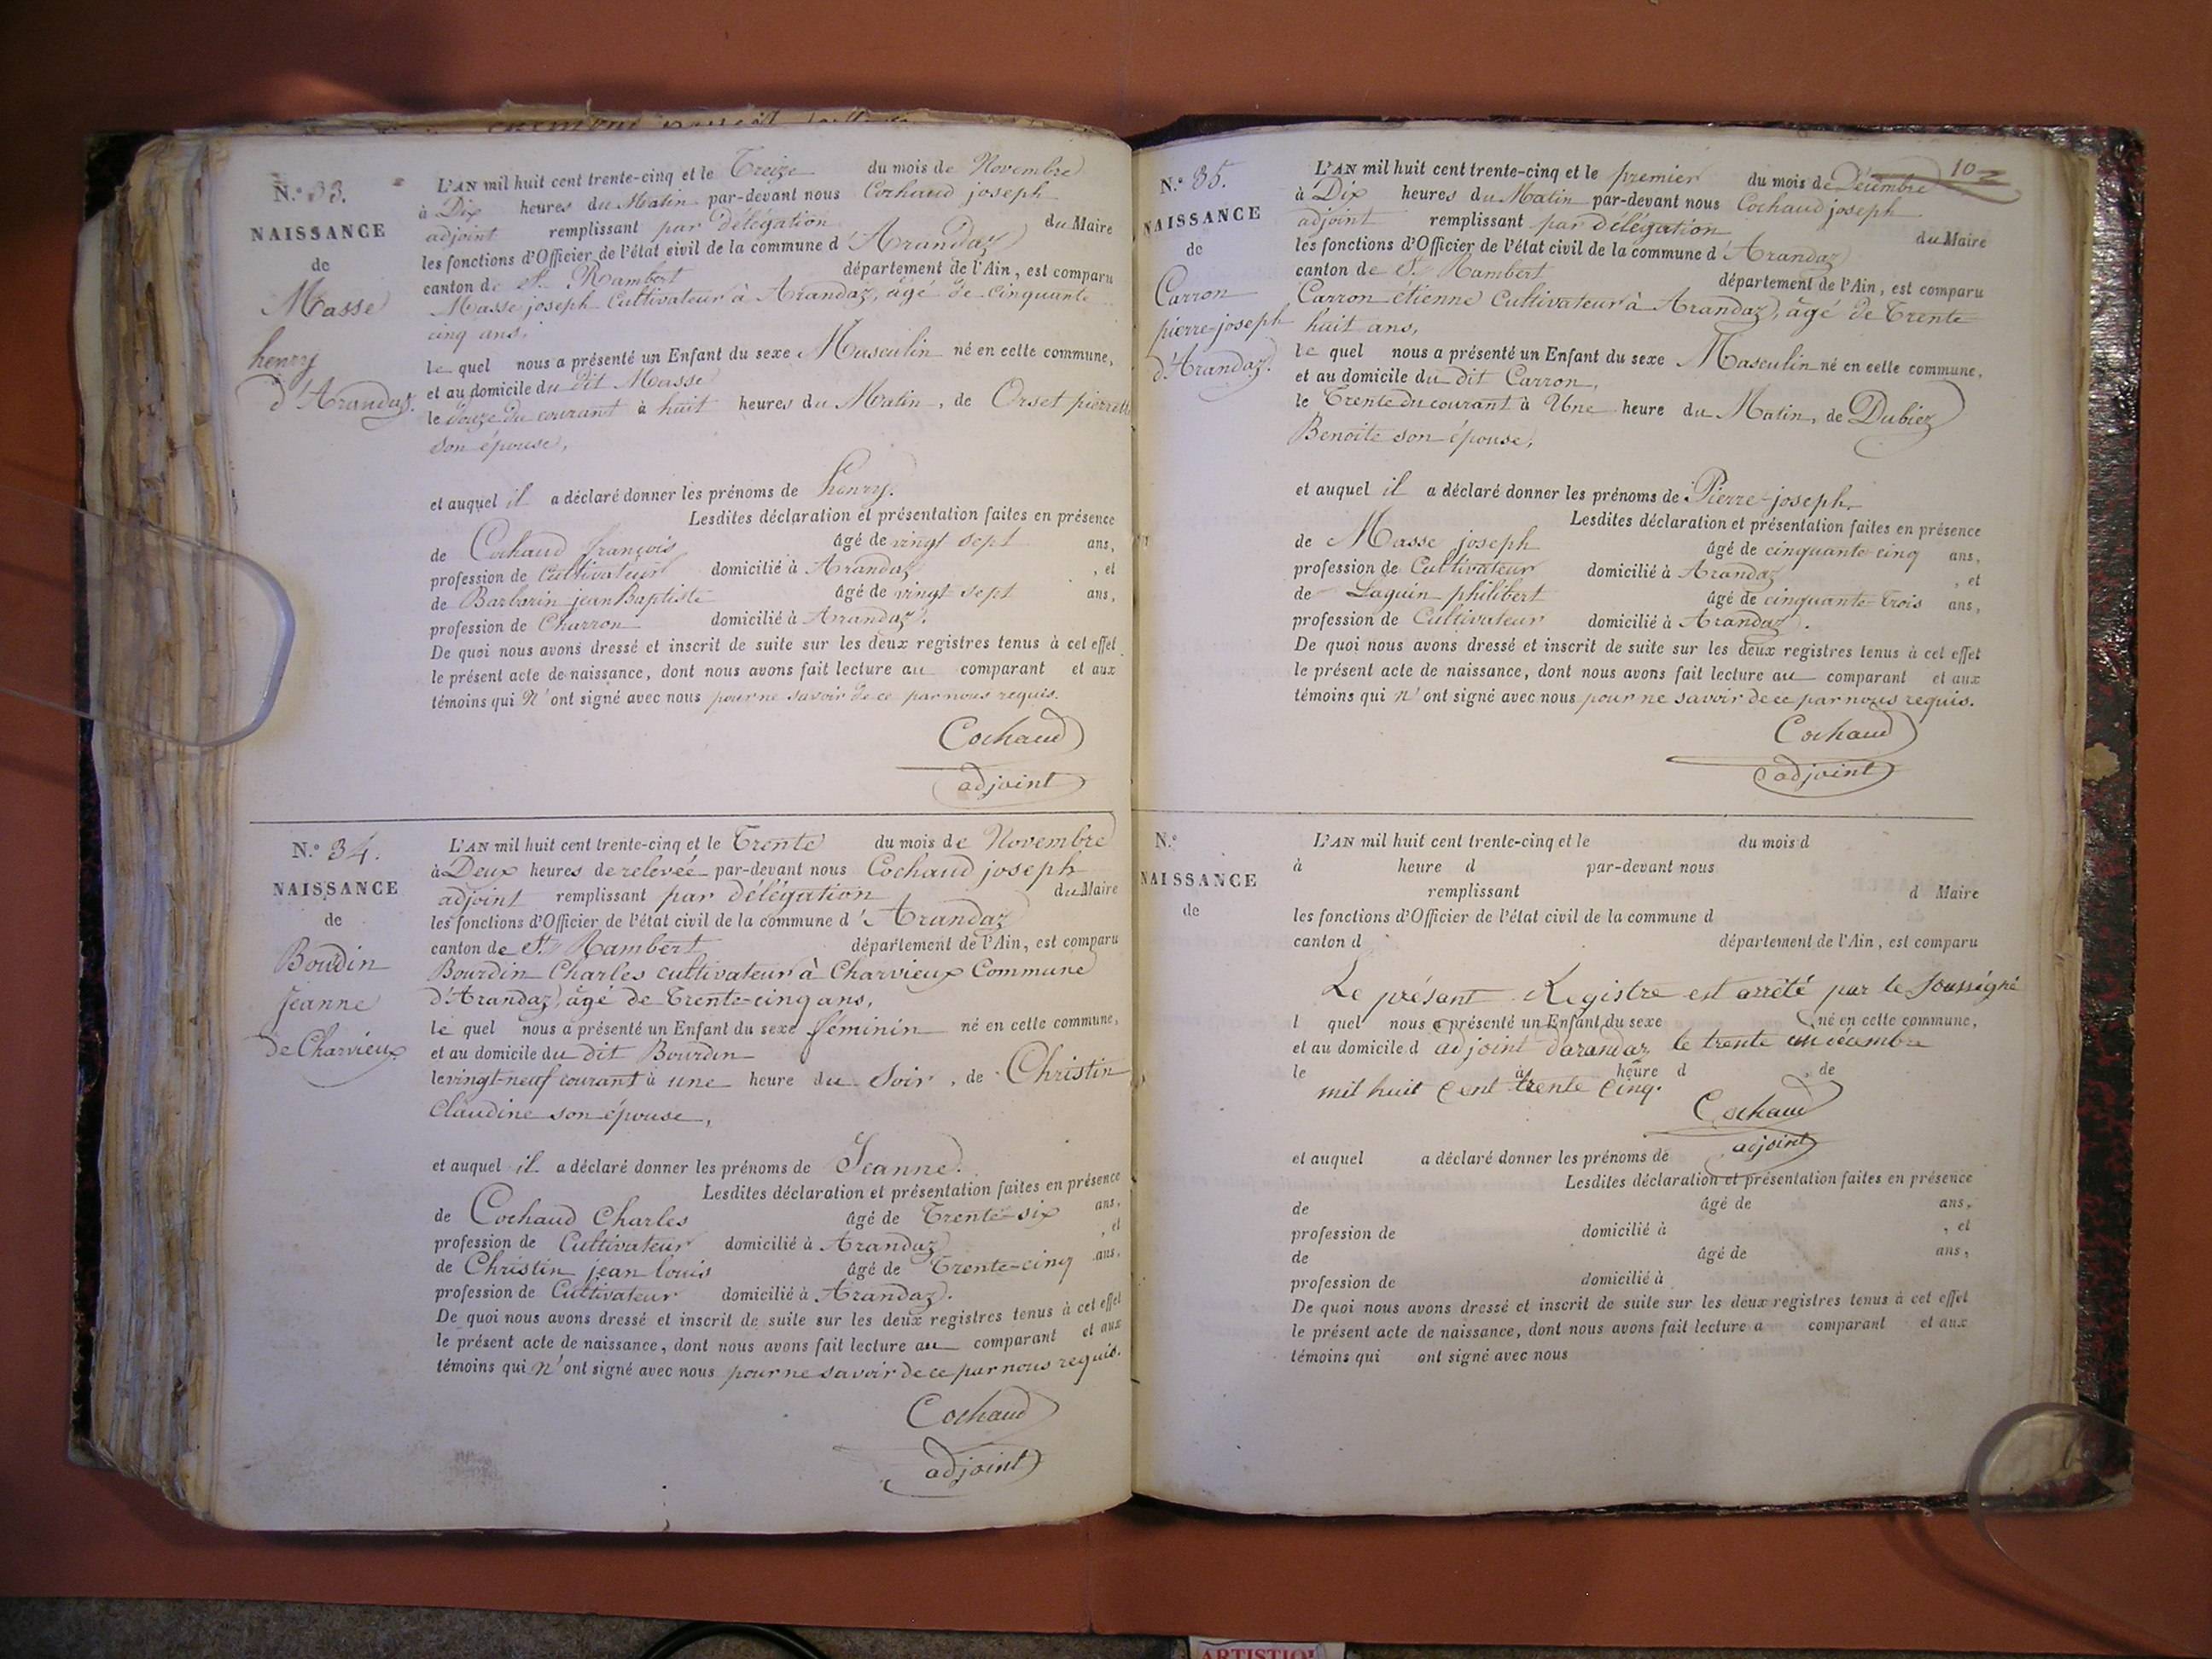 N.º 33.
NAISSANCE
de
Masse
henry
d'Arandaz.
L'AN mil huit cent trente-cinq et le Treize du mois de Novembre
à Dix heures du Matin par-devant nous Cochaud joseph
adjoint remplissant par délégation du Maire
les fonctions d'Officier de l'état civil de la commune d'Arandaz
canton de St. Rambert département de l'Ain, est comparu
Masse joseph Cultivateur à Arandaz, âgé de Cinquante
cinq ans,
le quel nous a présenté un Enfant du sexe Masculin né en cette commune,
et au domicile du dit Masse
le Douze du courant à huit heures du Matin, de Orset pierrette
son épouse,
et auquel il a déclaré donner les prénoms de henry.
Lesdites déclaration et présentation faites en présence
de Cochaud françois âgé de vingt sept ans,
profession de Cultivateur domicilié à Arandaz, et
de Barbarin jean Baptiste âgé de vingt sept ans,
profession de Charron domicilié à Arandaz.
De quoi nous avons dressé et inscrit de suite sur les deux registres tenus à cet effet
le présent acte de naissance, dont nous avons fait lecture au comparant et aux
témoins qui n'ont signé avec nous pour ne savoir de ce par nous requis.
Cochaud
adjoint
N.º 34.
NAISSANCE
de
Boudin
Jeanne
de Charvieux
L'AN mil huit cent trente-cinq et le Trente du mois de Novembre
à Deux heures de relevée par-devant nous Cochaud joseph
adjoint remplissant par délégation du Maire
les fonctions d'Officier de l'état civil de la commune d'Arandaz
canton de St. Rambert département de l'Ain, est comparu
Bourdin Charles cultivateur à Charvieux Commune
d'Arandaz, âgé de Trente-cinq ans,
le quel nous a présenté un Enfant du sexe féminin né en cette commune,
et au domicile du dit Bourdin
le vingt-neuf courant à une heure du Soir, de Christin
Claudine son épouse,
et auquel il a déclaré donner les prénoms de Jeanne.
Lesdites déclaration et présentation faites en présence
de Cochaud Charles âgé de Trente-six ans,
profession de Cultivateur domicilié à Arandaz, et
de Christin jean louis âgé de Trente-cinq ans,
profession de Cultivateur domicilié à Arandaz.
De quoi nous avons dressé et inscrit de suite sur les deux registres tenus à cet effet
le présent acte de naissance, dont nous avons fait lecture au comparant et aux
témoins qui n'ont signé avec nous pour ne savoir de ce par nous requis.
Cochaud
adjoint
10
N.º 35.
NAISSANCE
de
Carron
pierre-joseph
d'Arandaz.
L'AN mil huit cent trente-cinq et le premier du mois de Décembre
à Dix heures du Matin par-devant nous Cochaud joseph
adjoint remplissant par délégation du Maire
les fonctions d'Officier de l'état civil de la commune d'Arandaz
canton de St. Rambert département de l'Ain, est comparu
Carron étienne Cultivateur à Arandaz, âgé de Trente
huit ans,
le quel nous a présenté un Enfant du sexe Masculin né en cette commune,
et au domicile du dit Carron,
le Trente du courant à Une heure du Matin, de Dubiez
Benoîte son épouse,
et auquel il a déclaré donner les prénoms de Pierre-joseph.
Lesdites déclaration et présentation faites en présence
de Masse joseph âgé de cinquante cinq ans,
profession de Cultivateur domicilié à Arandaz, et
de Laguin philibert âgé de cinquante-Trois ans,
profession de Cultivateur domicilié à Arandaz.
De quoi nous avons dressé et inscrit de suite sur les deux registres tenus à cet effet
le présent acte de naissance, dont nous avons fait lecture au comparant et aux
témoins qui n'ont signé avec nous pour ne savoir de ce par nous requis.
Cochaud
adjoint
N.º
NAISSANCE
de
L'AN mil huit cent trente-cinq et le du mois d
à heure d par-devant nous
remplissant d Maire
les fonctions d'Officier de l'état civil de la commune d
canton d département de l'Ain, est comparu
Le présant Registre est arrêté par le Soussigné
l quel nous a présenté un Enfant du sexe né en cette commune,
et au domicile d adjoint d'arandaz le trente un décembre
le à heure d , de
mil huit Cent trente Cinq.
Cochaud
adjoint
et auquel a déclaré donner les prénoms de
Lesdites déclaration et présentation faites en présence
de âgé de ans,
profession de domicilié à , et
de âgé de ans,
profession de domicilié à
De quoi nous avons dressé et inscrit de suite sur les deux registres tenus à cet effet
le présent acte de naissance, dont nous avons fait lecture a comparant et aux
témoins qui ont signé avec nous